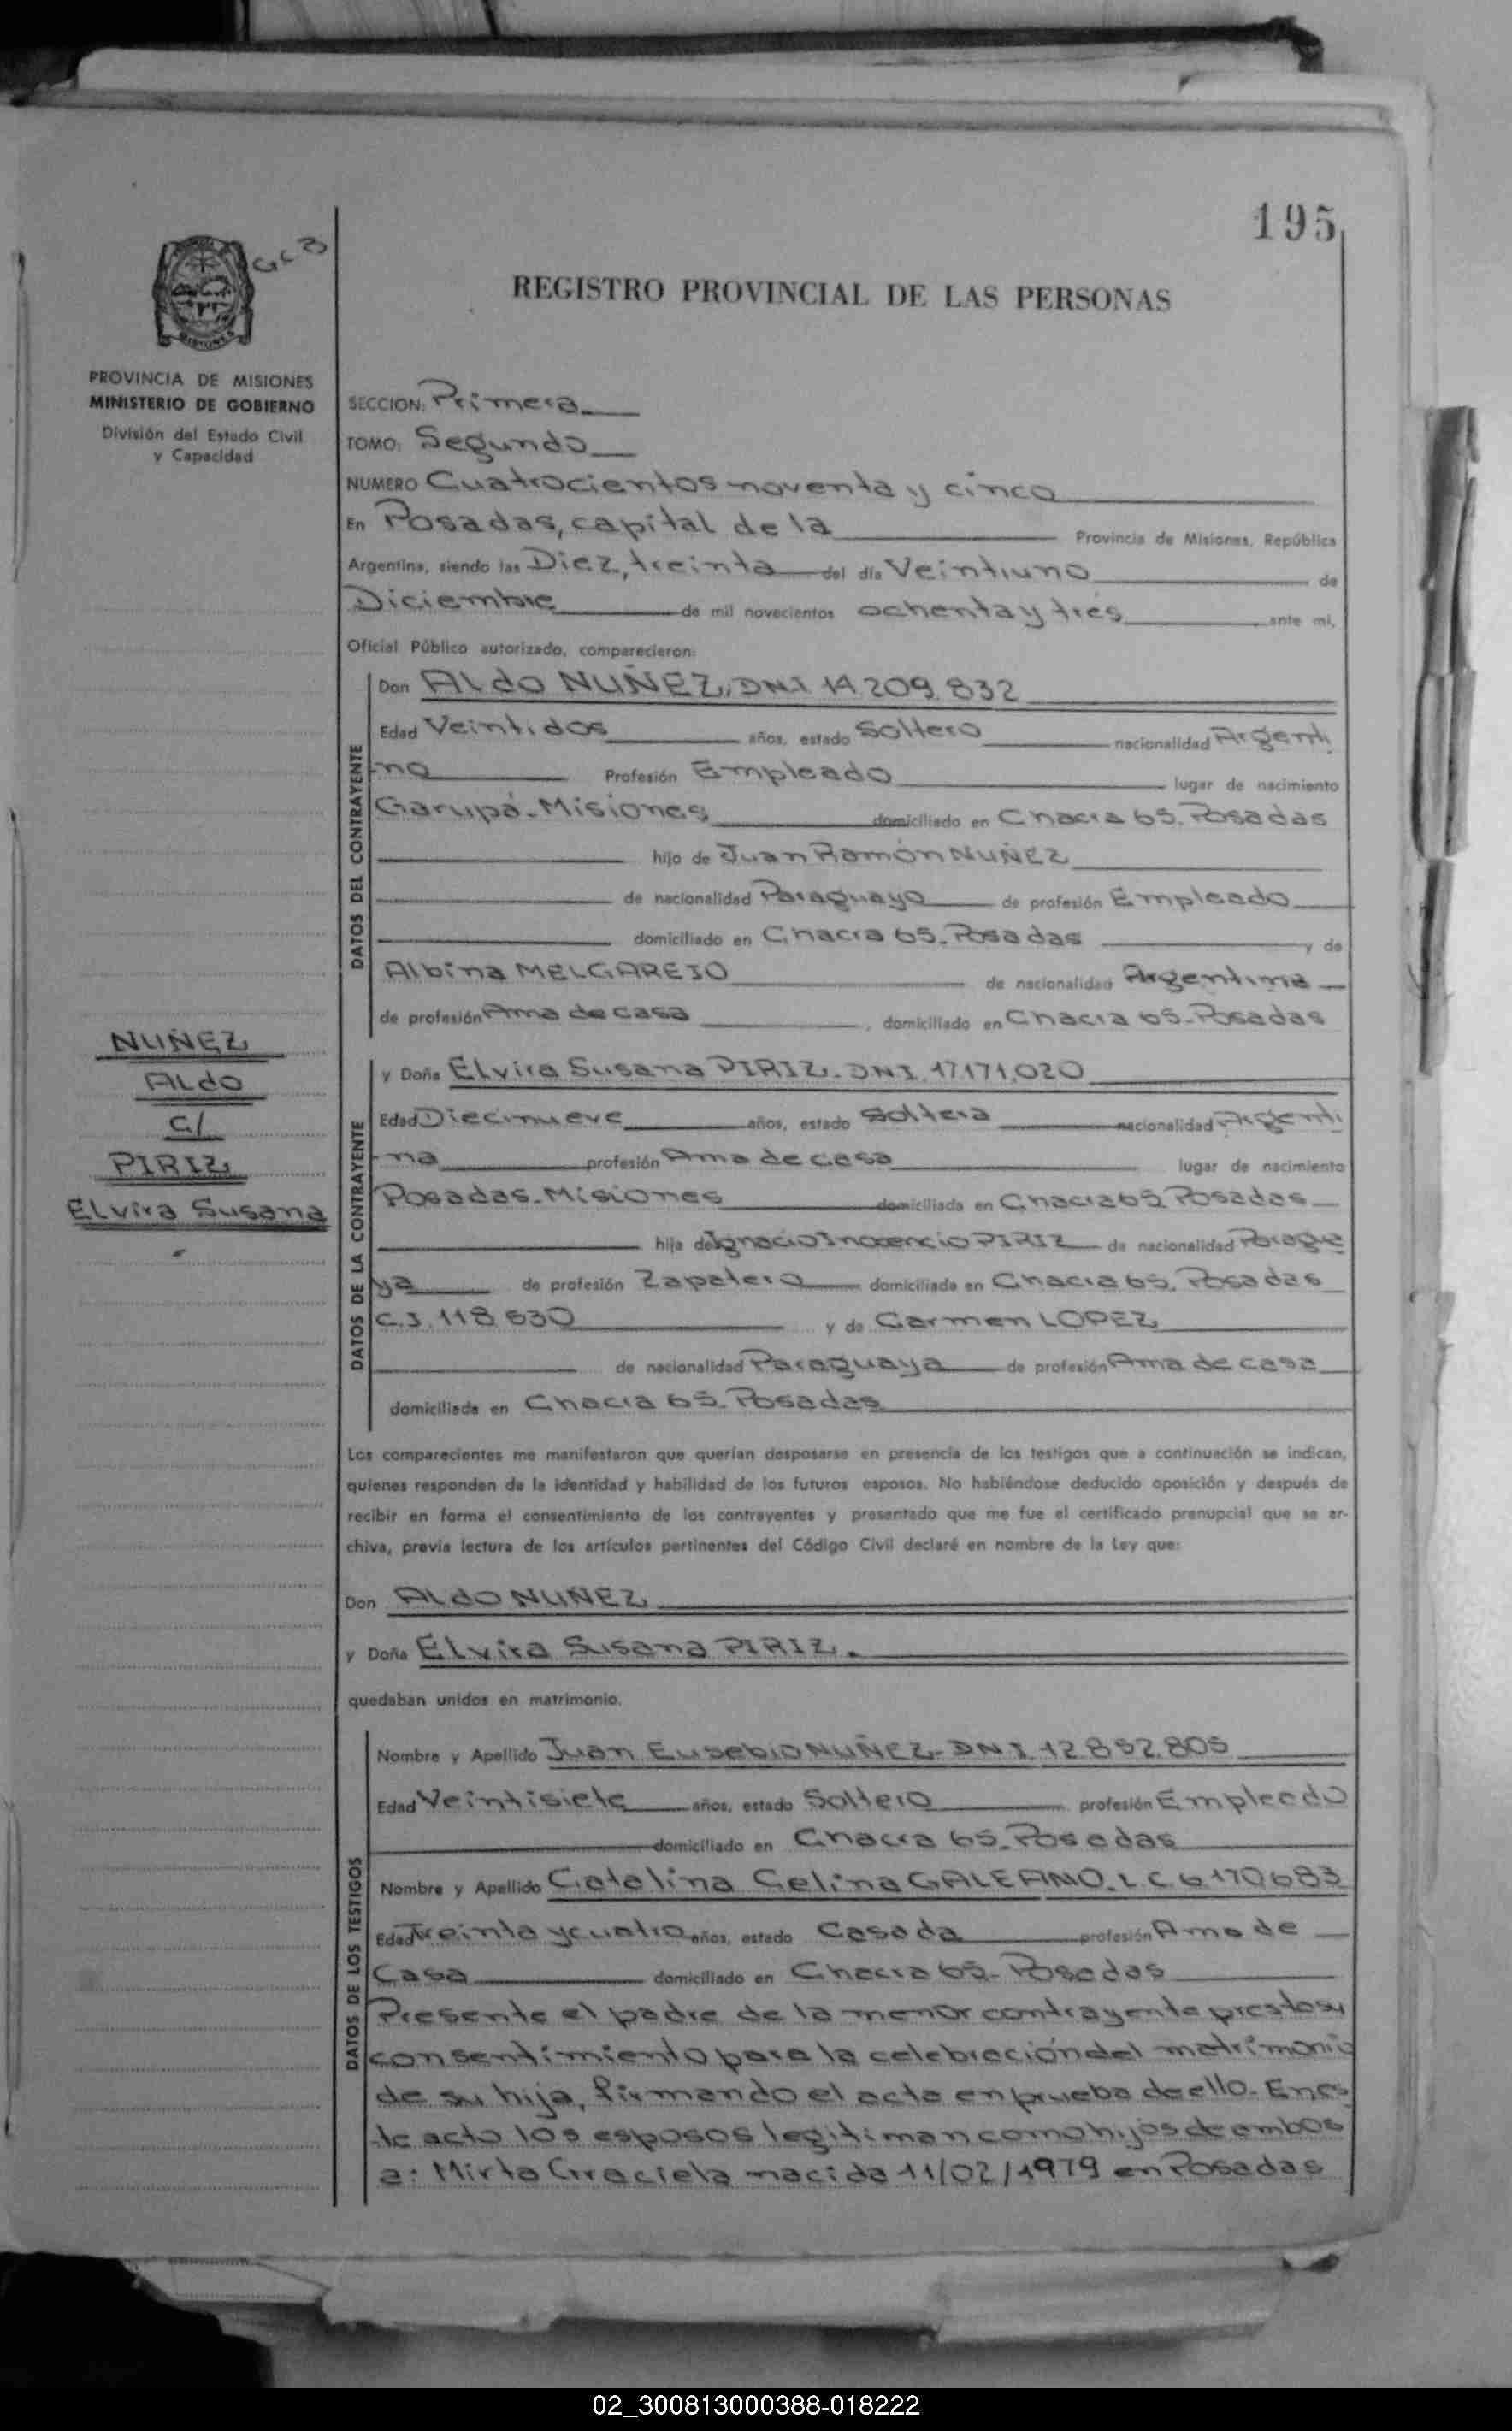 195
GCB
REGISTRO PROVINCIAL DE LAS PERSONAS
PROVINCIA DE MISIONES
MINISTERIO DE GOBIERNO
División del Estado Civil
y Capacidad
SECCION: Primera
TOMO: Segundo
NUMERO Cuatrocientos noventa y cinco
En Posadas, capital de la Provincia de Misiones, República
Argentina, siendo las Diez, treinta del día Veintiuno de
Diciembre de mil novecientos ochenta y tres ante mi,
Oficial Público autorizado, comparecieron:
DATOS DEL CONTRAYENTE
Don Aldo NUÑEZ, DNI 14.209.832
Edad Veintidos años, estado Soltero nacionalidad Argenti
-no Profesión Empleado lugar de nacimiento
Garupá-Misiones domiciliado en Chacra 65. Posadas
hijo de Juan Ramón NUÑEZ
de nacionalidad Paraguayo de profesión Empleado
domiciliado en Chacra 65. Posadas y de
Albina MELGAREJO de nacionalidad Argentina
de profesión Ama de casa, domiciliado en Chacra 65-Posadas
NUÑEZ
Aldo
C/
PIRIZ
Elvira Susana
DATOS DE LA CONTRAYENTE
y Doña Elvira Susana PIRIZ. DNI. 17.171.020
Edad Diecinueve años, estado Soltera nacionalidad Argenti
-na profesión Ama de casa lugar de nacimiento
Posadas-Misiones domiciliada en Chacra 65 Posadas
hija de Ignacio Inocencio PIRIZ de nacionalidad Paragua
ya de profesión Zapatero domiciliada en Chacra 65. Posadas
C.I. 118.630 y de Carmen LOPEZ
de nacionalidad Paraguaya de profesión Ama de casa
domiciliada en Chacra 65. Posadas
Los comparecientes me manifestaron que querían desposarse en presencia de los testigos que a continuación se indican,
quienes responden de la identidad y habilidad de los futuros esposos. No habiéndose deducido oposición y después de
recibir en forma el consentimiento de los contrayentes y presentado que me fue el certificado prenupcial que se ar-
chiva, previa lectura de los artículos pertinentes del Código Civil declaré en nombre de la Ley que:
Don Aldo NUÑEZ
y Doña Elvira Susana PIRIZ.
quedaban unidos en matrimonio.
DATOS DE LOS TESTIGOS
Nombre y Apellido Juan Eusebio NUÑEZ-DNI 12.852.805
Edad Veintisiete años, estado Soltero profesión Empleado
domiciliado en Chacra 65. Posadas
Nombre y Apellido Catalina Celina GALEANO. L C 6.170683
Edad Treinta y cuatro años, estado Casada profesión Ama de
Casa domiciliado en Chacra 65- Posadas
Presente el padre de la menor contrayente presto su
consentimiento para la celebración del matrimonio
de su hija, firmando el acta en prueba de ello. En es
te acto los esposos legitiman como hijos de ambos
a: Mirta Graciela nacida 11/02/1979 en Posadas
02_300813000388-018222